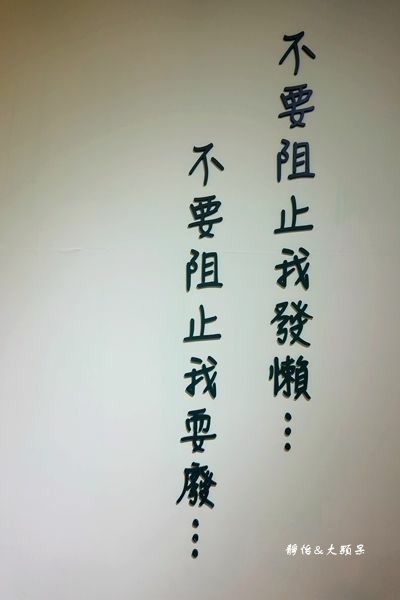 不要阻止我發懶…
不要阻止我耍廢…
靜怡&大顆呆